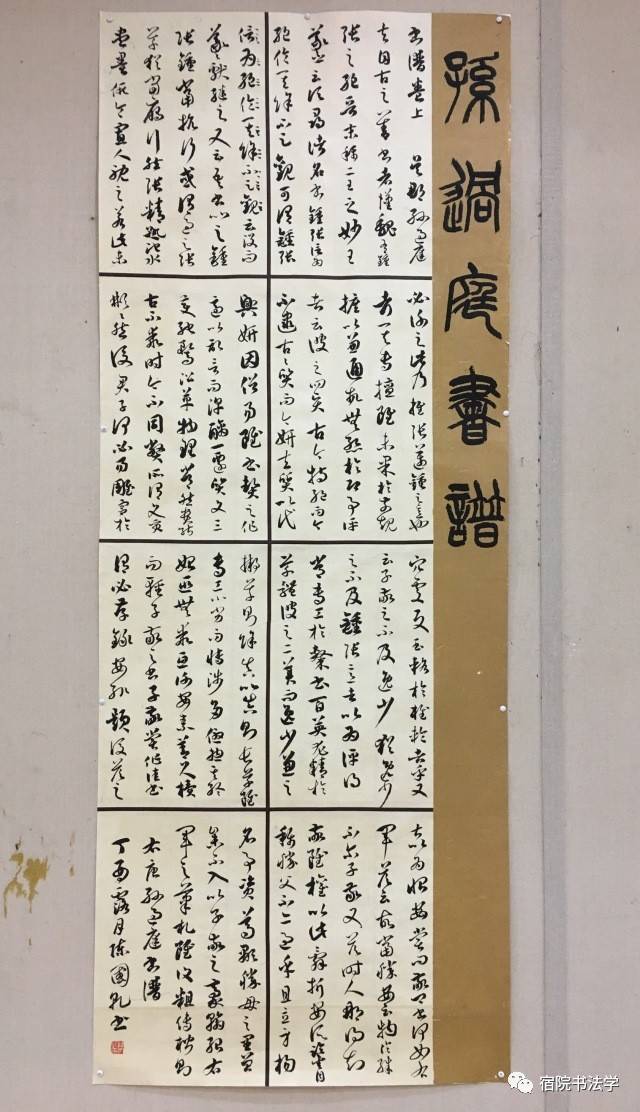 孫過庭書譜
書譜卷上 吳郡孫過庭
夫自古之善書者漢魏有鍾
張之絕晉末稱二王之妙王
羲之云頃尋諸名書鍾張信為
絕倫其餘不足觀可謂鍾張
信為絕倫其餘不足觀云沒而
羲獻繼之又云吾書比之鍾
張鍾當抗行或謂過之張
草猶當雁行然張精熟池水
盡墨假令寡人耽之若此未
必謝之此乃推張邁鍾之意也
考其專擅雖未果於前規
摭以兼通故無慚於即事評
者云彼之四賢古今特絕而今
不逮古古質而今妍夫質以代
興妍因俗易雖書契之作
適以記言而淳醨一遷質文三
變馳騖沿革物理常然貴能
古不乖時今不同弊所謂文質
彬彬然後君子何必易雕宮於
穴處反玉輅於椎輪者乎又
云子敬之不及逸少猶逸少
之不及鍾張意者以為評得
常專工於隸書百英尤精於
草體彼之二美而逸少兼之
擬草則餘真比真則長草雖
專工小劣而博涉多優總其終
始匪無乖互謝安素善尺牘
而輕子敬之書子敬嘗作佳書
謂必存錄安輒題後答之
甚以為恨安嘗問敬卿書何如右
軍答云故當勝安云物論殊
不爾子敬又答時人那得知
敬雖權以此辭折安所鑒自
稱勝父不亦過乎且立身揚
名事資尊顯勝母之里曾
參不入以子敬之豪翰紹右
軍之筆札雖復粗傳楷則
右唐孫過庭書譜
丁酉露月陳國孔書
宿院书法学